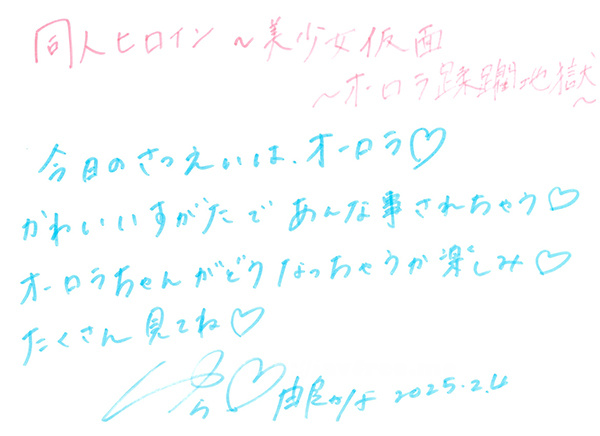 同人ヒロイン～美少女仮面
～オーロラ蹂躙地獄～
今日のさつえいは、オーロラ♡
かわいいすがたであんな事されちゃう♡
オーロラちゃんがどうなっちゃうか楽しみ♡
たくさん見てね♡
♡ 由良かな 2025.2.4